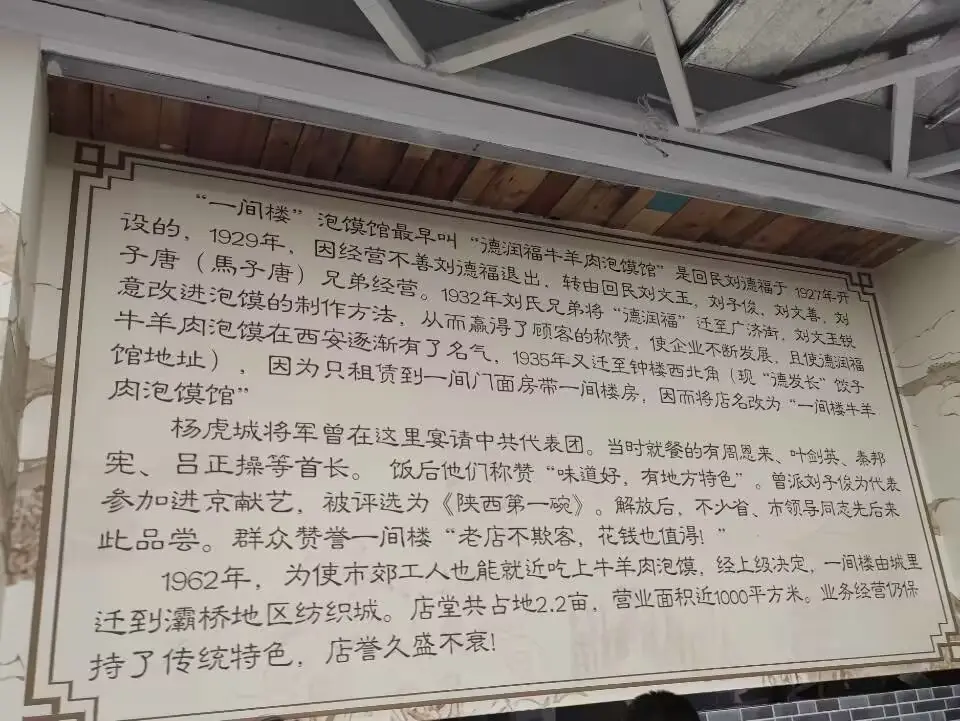 “一间楼”泡馍馆最早叫“德润福牛羊肉泡馍馆”是回民刘德福于1927年开
设的，1929年，因经营不善刘德福退出，转由回民刘文玉，刘子俊，刘文善，刘
子唐（馬子唐）兄弟经营。1932年刘氏兄弟将“德润福”迁至广济街，刘文玉锐
意改进泡馍的制作方法，从而赢得了顾客的称赞，使企业不断发展，且使德润福
牛羊肉泡馍在西安逐渐有了名气，1935年又迁至钟楼西北角（现“德发长”饺子
馆地址），因为只租赁到一间门面房带一间楼房，因而将店名改为“一间楼牛羊
肉泡馍馆”
杨虎城将军曾在这里宴请中共代表团。当时就餐的有周恩来、叶剑英、秦邦
宪、吕正操等首长。饭后他们称赞“味道好，有地方特色”。曾派刘子俊为代表
参加进京献艺，被评选为《陕西第一碗》。解放后，不少省、市领导同志先后来
此品尝。群众赞誉一间楼“老店不欺客，花钱也值得！”
1962年，为使市郊工人也能就近吃上牛羊肉泡馍，经上级决定，一间楼由城里
迁到灞桥地区纺织城。店堂共占地2.2亩，营业面积近1000平方米。业务经营仍保
持了传统特色，店誉久盛不衰！